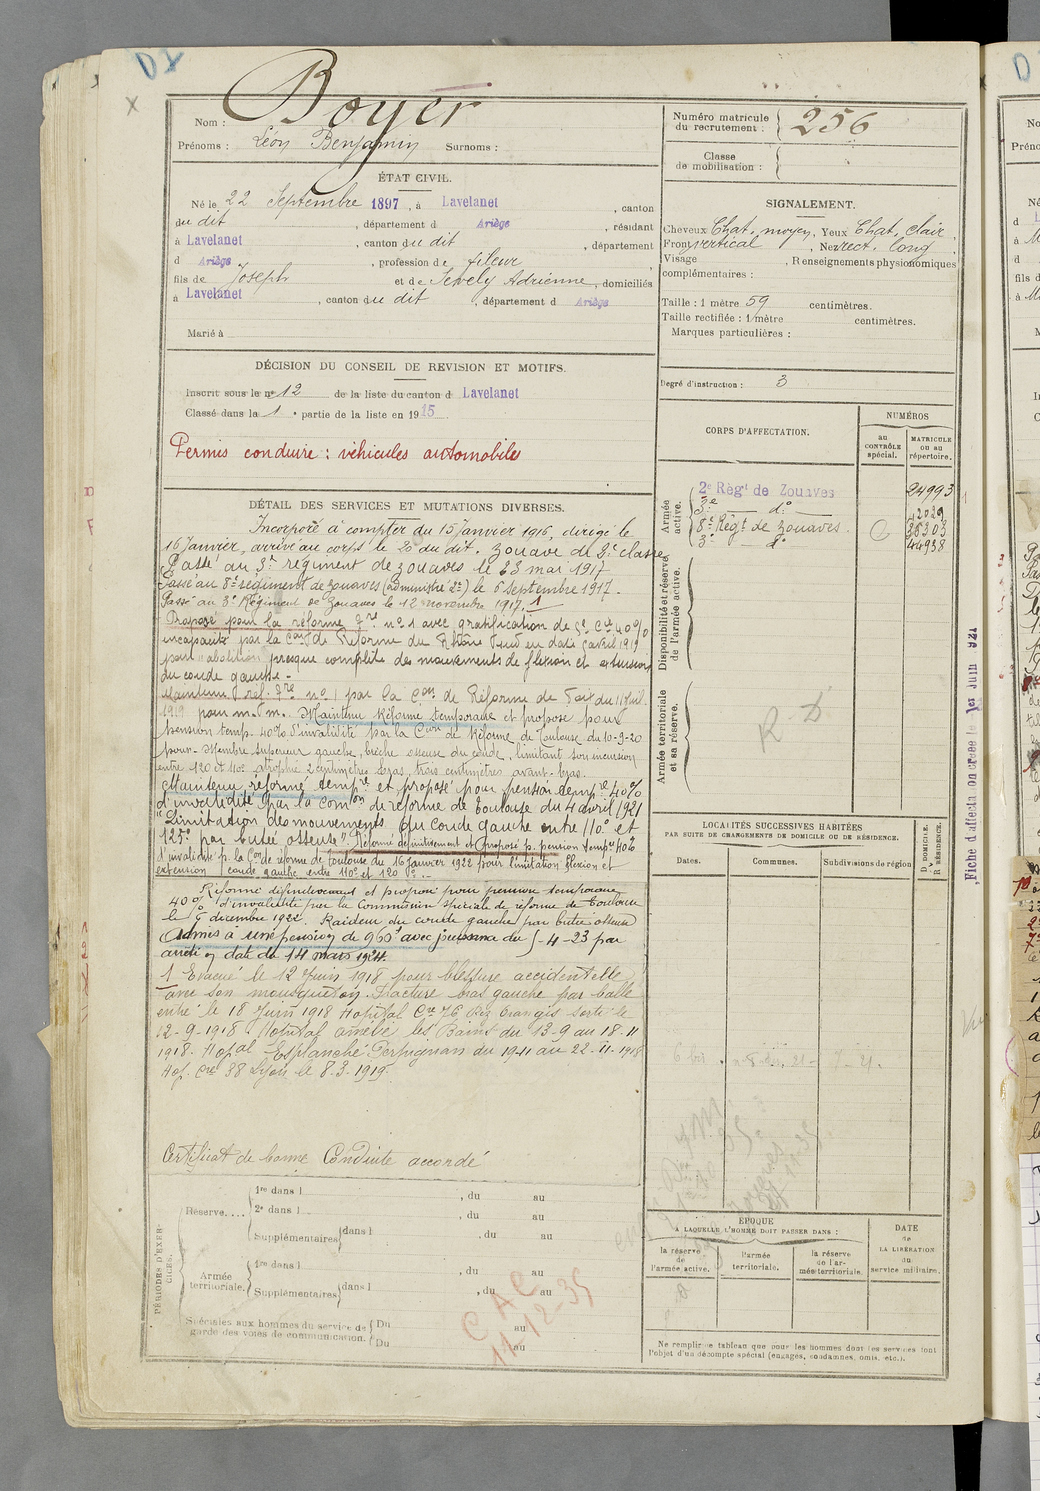 D X
Nom : Boyer
Prénoms : Léon Benjamin Surnoms :
Numéro matricule du recrutement : 256
Classe de mobilisation :
ÉTAT CIVIL.
Né le 22 Septembre 1897, à Lavelanet, canton
du dit, département d Ariège, résidant
à Lavelanet, canton du dit, département
d Ariège, profession de fileur
fils de Joseph et de Adrienne, domiciliés
à Lavelanet, canton du dit, département d Ariège
Marié à
SIGNALEMENT.
Cheveux Chat. moyen, Yeux Chat. clair,
Front vertical, Nez rect. long
Visage , Renseignements physionomiques
complémentaires :
Taille : 1 mètre 59 centimètres.
Taille rectifiée : 1 mètre centimètres.
Marques particulières :
Degré d'instruction : 3
DÉCISION DU CONSEIL DE REVISION ET MOTIFS.
Inscrit sous le n° 12 de la liste du canton d Lavelanet
Classé dans la 1e partie de la liste en 1915
Permis conduire : véhicules automobiles
CORPS D'AFFECTATION.
NUMÉROS
au CONTRÔLE spécial.
MATRICULE ou au répertoire.
Armée active.
2e Régt de Zouaves 24993
3e d° 42029
8e Régt de Zouaves 38303
3e d° 44938
Disponibilité et réserve de l'armée active.
Armée territoriale et sa réserve.
R D
DÉTAIL DES SERVICES ET MUTATIONS DIVERSES.
Incorporé à compter du 15 Janvier 1916, dirigé le
16 Janvier, arrivé au corps le 20 du dit. Zouave de 2e classe
Passé au 3e régiment de zouaves le 23 mai 1917
Passé au 8e régiment de zouaves le 6 septembre 1917.
Passé au 3e Régiment de Zouaves le 12 novembre 1917. 1
Proposé pour la réforme n° 1 avec gratification de 40%
incapacité par la Con de Réforme du Rhône
pour "abolition presque complète des mouvements de flexion et extension
du coude gauche"
Maintenu réf. n° 1 par la Con de Réforme de Foix du
1919 pour m. m. Maintenu Réformé temporaire et proposé pour
pension temp. 40% d'invalidité par la Con de Réforme de Toulouse du 10-9-20
pour - Membre supérieur gauche, brèche osseuse du coude, limitant son incursion
entre 120 et 110°, atrophie 2 centimètres bras, trois centimètres avant-bras.
Maintenu réformé tempre et proposé pour pension tempre 40%
d'invalidité par la Comon de réforme de Toulouse du 4 avril 1921
"Limitation des mouvements du coude gauche entre 110° et
125° par butée osseuse" Réformé définitivement et proposé p. pension tempre 40%
d'invalidité p. la Con de réforme de Toulouse du 16 janvier 1922 pour limitation flexion et
extension coude gauche entre 110° et 120°.
Réformé définitivement et proposé pour pension temporaire
40% d'invalidité par la Commission spéciale de réforme de Toulouse
le 5 décembre 1922. Raideur du coude gauche par butée osseuse
Admis à une pension de 960f avec jouissance du 5-4-23 par
arrêté en date du 14 mars 1924.
1 Evacué le 12 Juin 1918 pour blessure accidentelle
avec son mousqueton. Fracture bras gauche par balle
entré le 18 Juin 1918 Hôpital Cre 76 sorti le
12-9-1918. Hôpital les Bains du 13-9 au 18-11
1918. Perpignan du 19-11 au 22-11-1918
Hop. Cre 38 Lyon le 8-3-1919.
Certificat de bonne Conduite accordé
LOCALITÉS SUCCESSIVES HABITÉES
PAR SUITE DE CHANGEMENTS DE DOMICILE OU DE RÉSIDENCE.
Dates. Communes. Subdivisions de région
D. DOMICILE. R RÉSIDENCE.
PÉRIODES D'EXERCICES.
Réserve.... 1re dans l , du au
2e dans l , du au
Supplémentaires dans l , du au
Armée territoriale. 1re dans l , du au
Supplémentaires dans l , du au
Spéciales aux hommes du service de garde des voies de communication. Du au
Du au
C A C
11-12-35
ÉPOQUE
A LAQUELLE L'HOMME DOIT PASSER DANS :
la réserve de l'armée active.
l'armée territoriale.
la réserve de l'armée territoriale.
DATE de LA LIBÉRATION du service militaire.
Ne remplir ce tableau que pour les hommes dont les services font
l'objet d'un décompte spécial (engagés, condamnés, omis, etc.).
Fiche d'affectation créée le 1er Juin 921